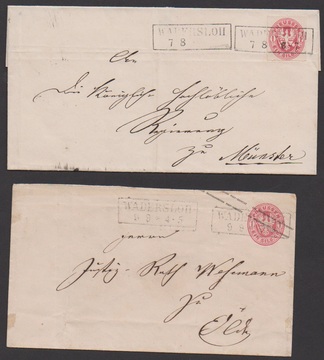 WADERSLOH
7 8
WADERSLOH
7 8
An
Die Königliche Hochlöbliche
Regierung
zu Münster
WADERSLOH
9 8 4-5
WADERSLOH
9 8
Herrn
Justiz-Rath
zu
Oelde